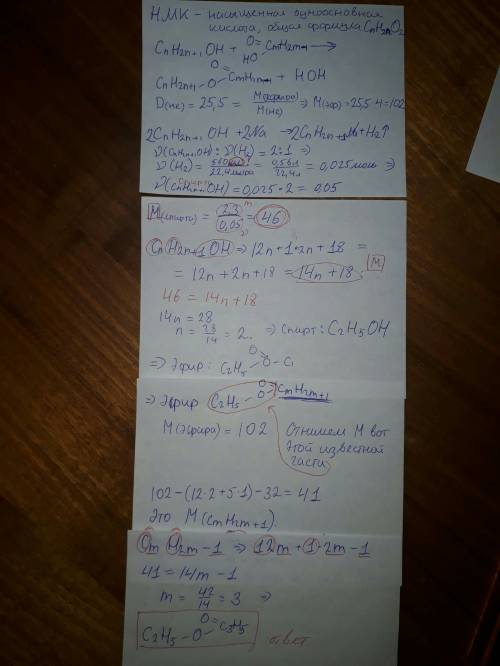 НМК - насыщенная одноосновная
кислота, общая формула CnH2nO2
CnH2n+1 OH + O= HO CmH2m+1 →
CnH2n+1 O O= CmH2m+1 + HOH
D(He) = 25,5 = M(эфира)/M(He) ⇒ M(эф) = 25,5·4 = 102
2CnH2n+1 OH + 2Na → 2CnH2n+1 + H2↑
ν(CnH2n+1OH) : ν(H2) = 2:1 ⇒
ν(H2) = 560мл/22,4 = 0,56л/22,4л = 0,025моль ⇒
спирт
ν(CnH2n+1OH) = 0,025·2 = 0,05
M(спирта) = 2,3/0,05 = 46
CnH2n+1OH ⇒ 12n + 1·2n + 18 =
= 12n + 2n + 18 = 14n + 18 M
46 = 14n + 18
14n = 28
n = 28/14 = 2. ⇒ Спирт: C2H5OH
⇒ Эфир: C2H5 O O= C
⇒ Эфир C2H5 O O= CmH2m+1
M(Эфира) = 102
Отнимем M вот
этой известной
части
102 - (12·2 + 5·1) - 32 = 41
Это M(CmH2m+1)
Cm H2m-1 ⇒ 12m + 1·2m - 1
41 = 14m - 1
m = 42/14 = 3 ⇒
C2H5 - O O= C3H5
ответ